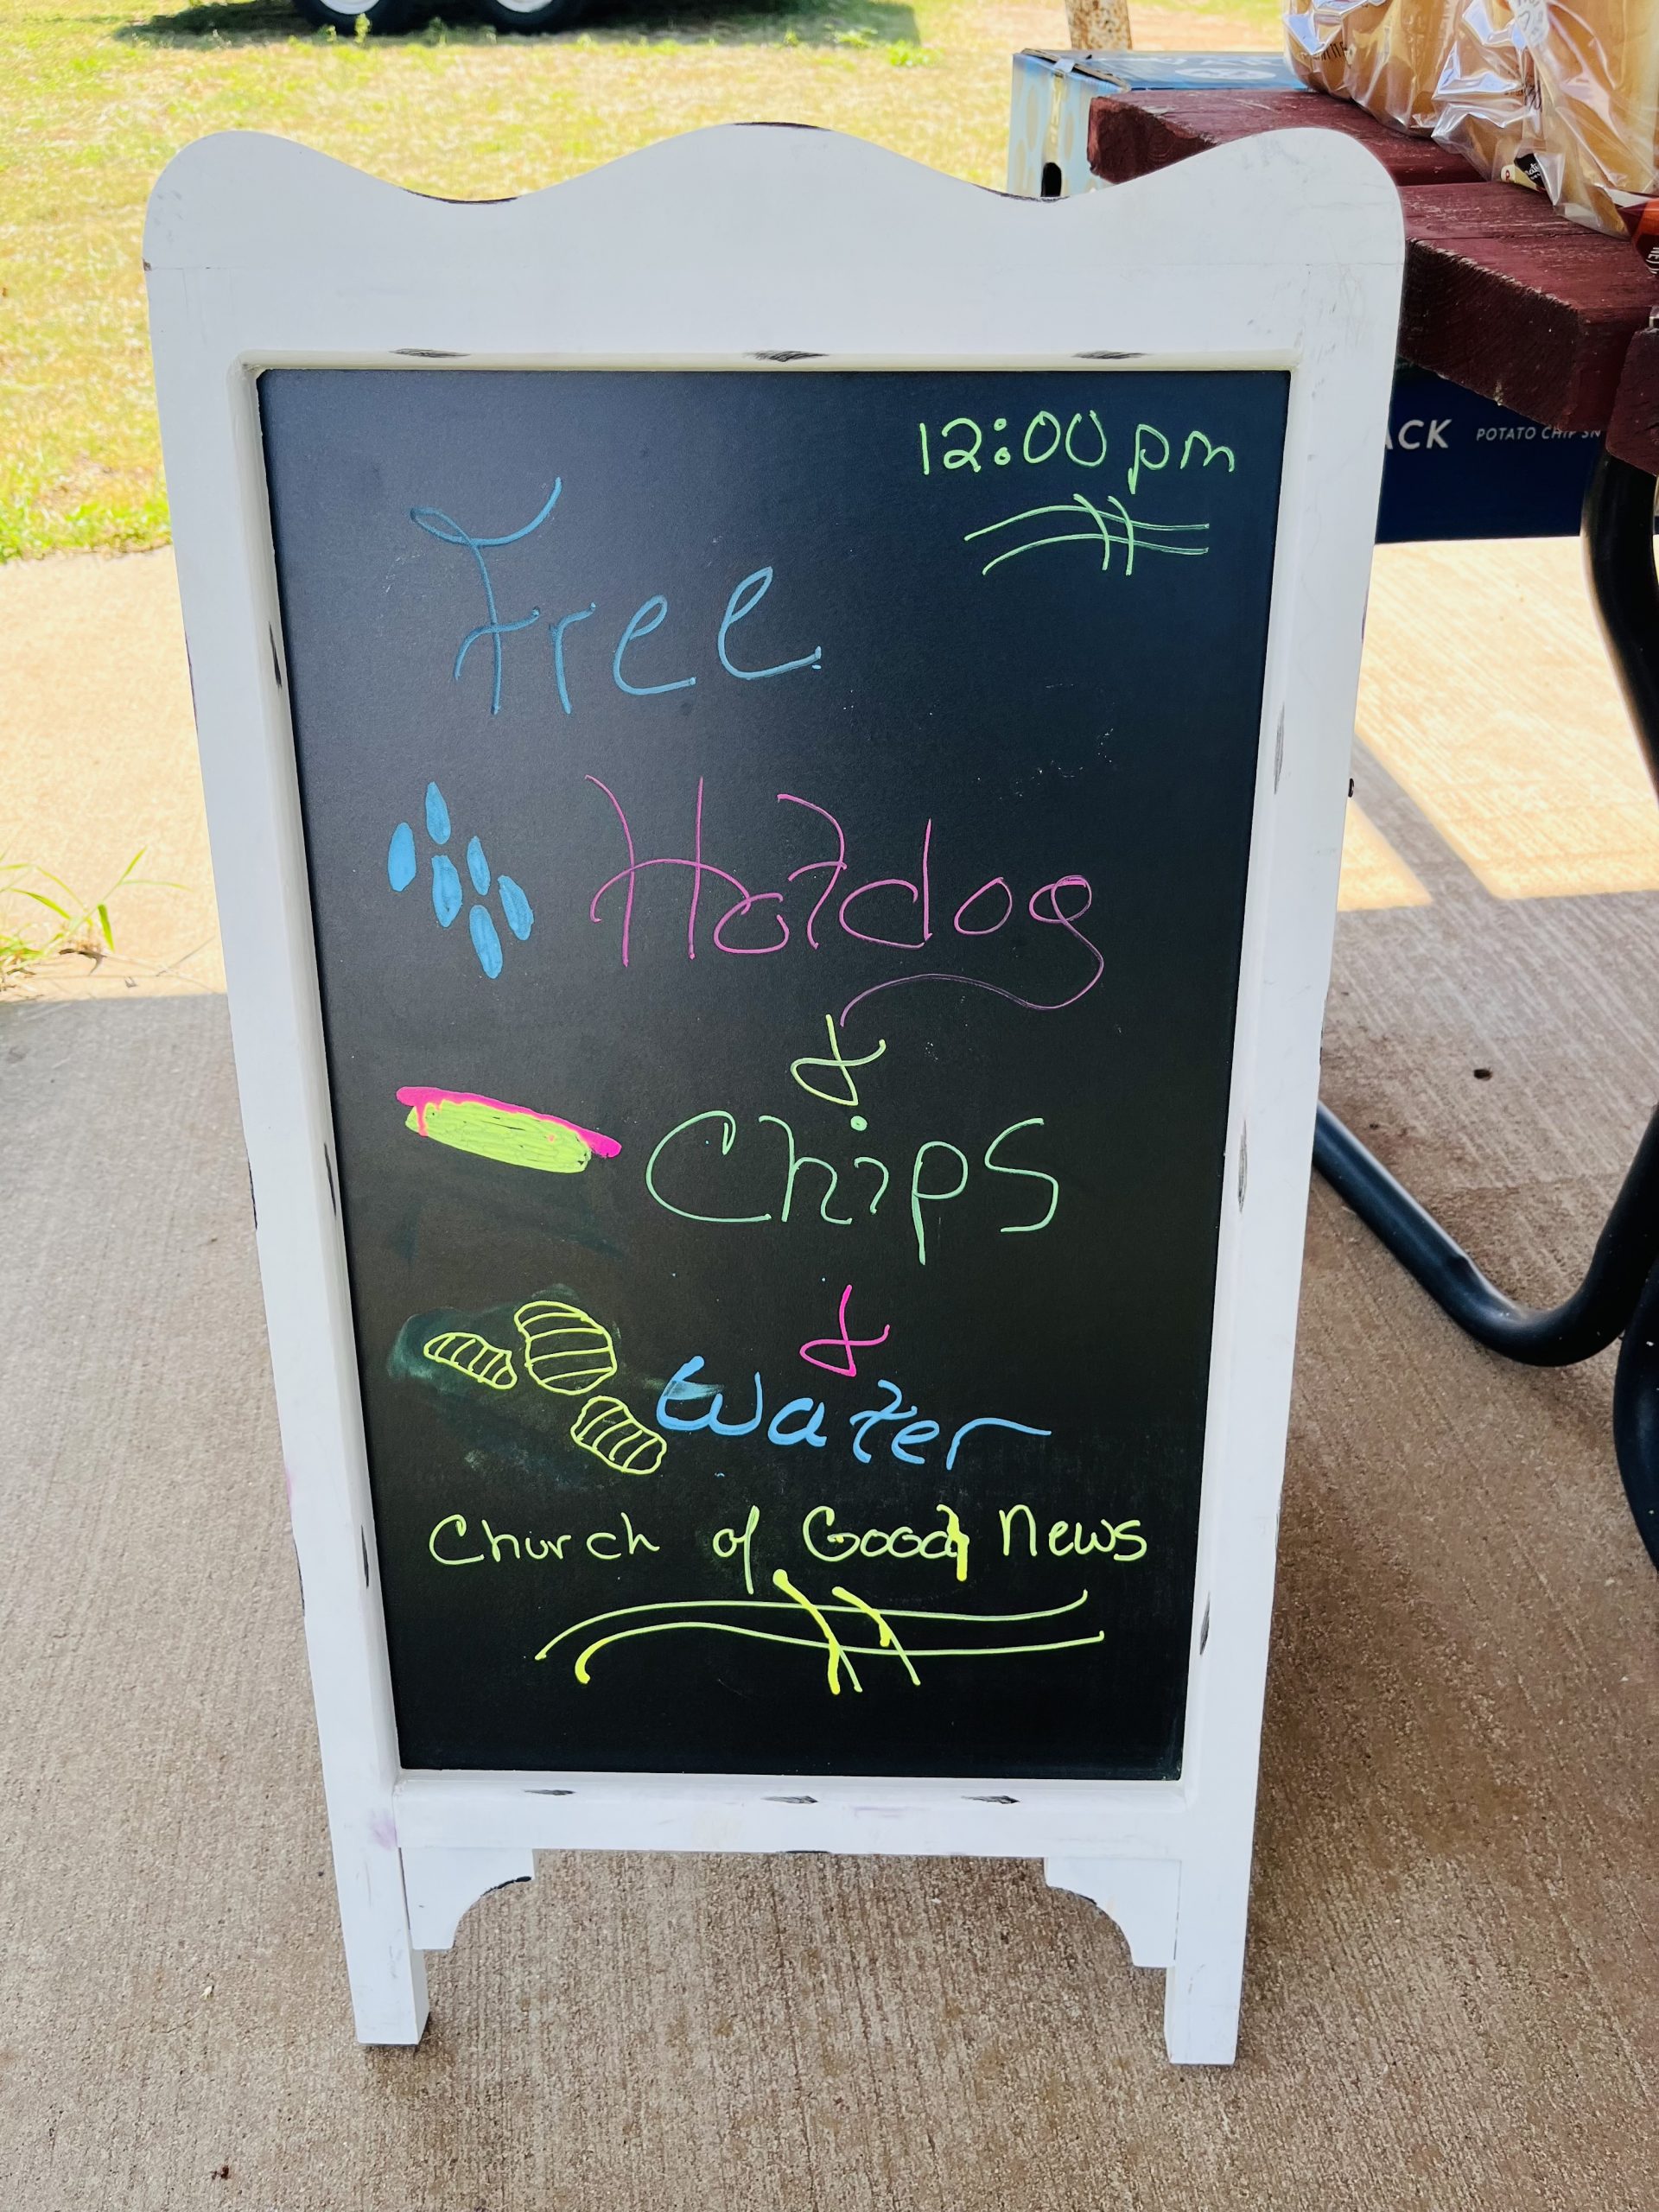 12:00 pm
Free
Hotdog
&
Chips
&
Water
Church of Good News
ACK POTATO CHIP SN